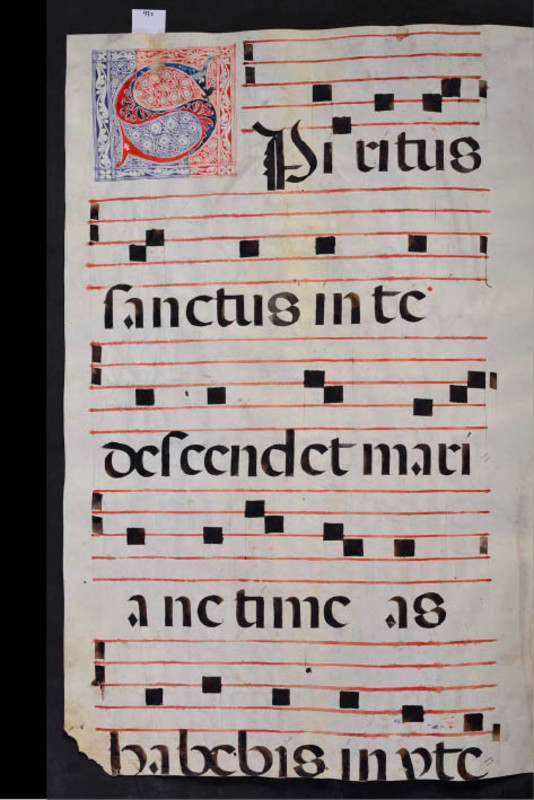 91v
SPiritus
sanctus in te
descendet mari
a ne time as
habebis in vte